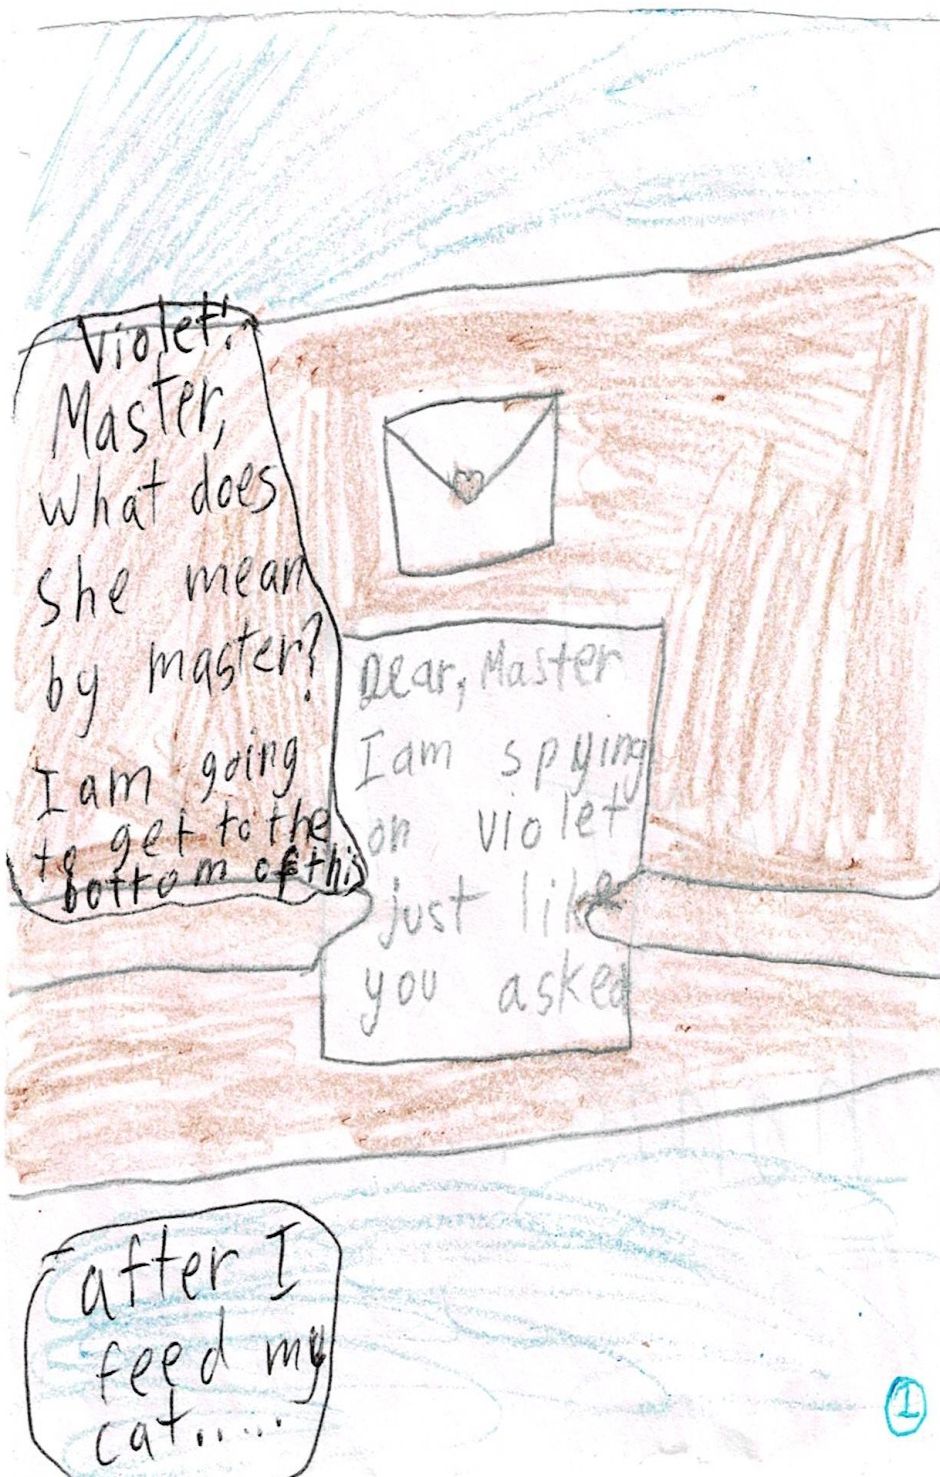 Violet:
Master,
What does
she mean
by master?
I am going
to get to the
bottom of this
Dear, Master
I am spying
on violet
just like
you asked
after I
feed my
cat.....
1